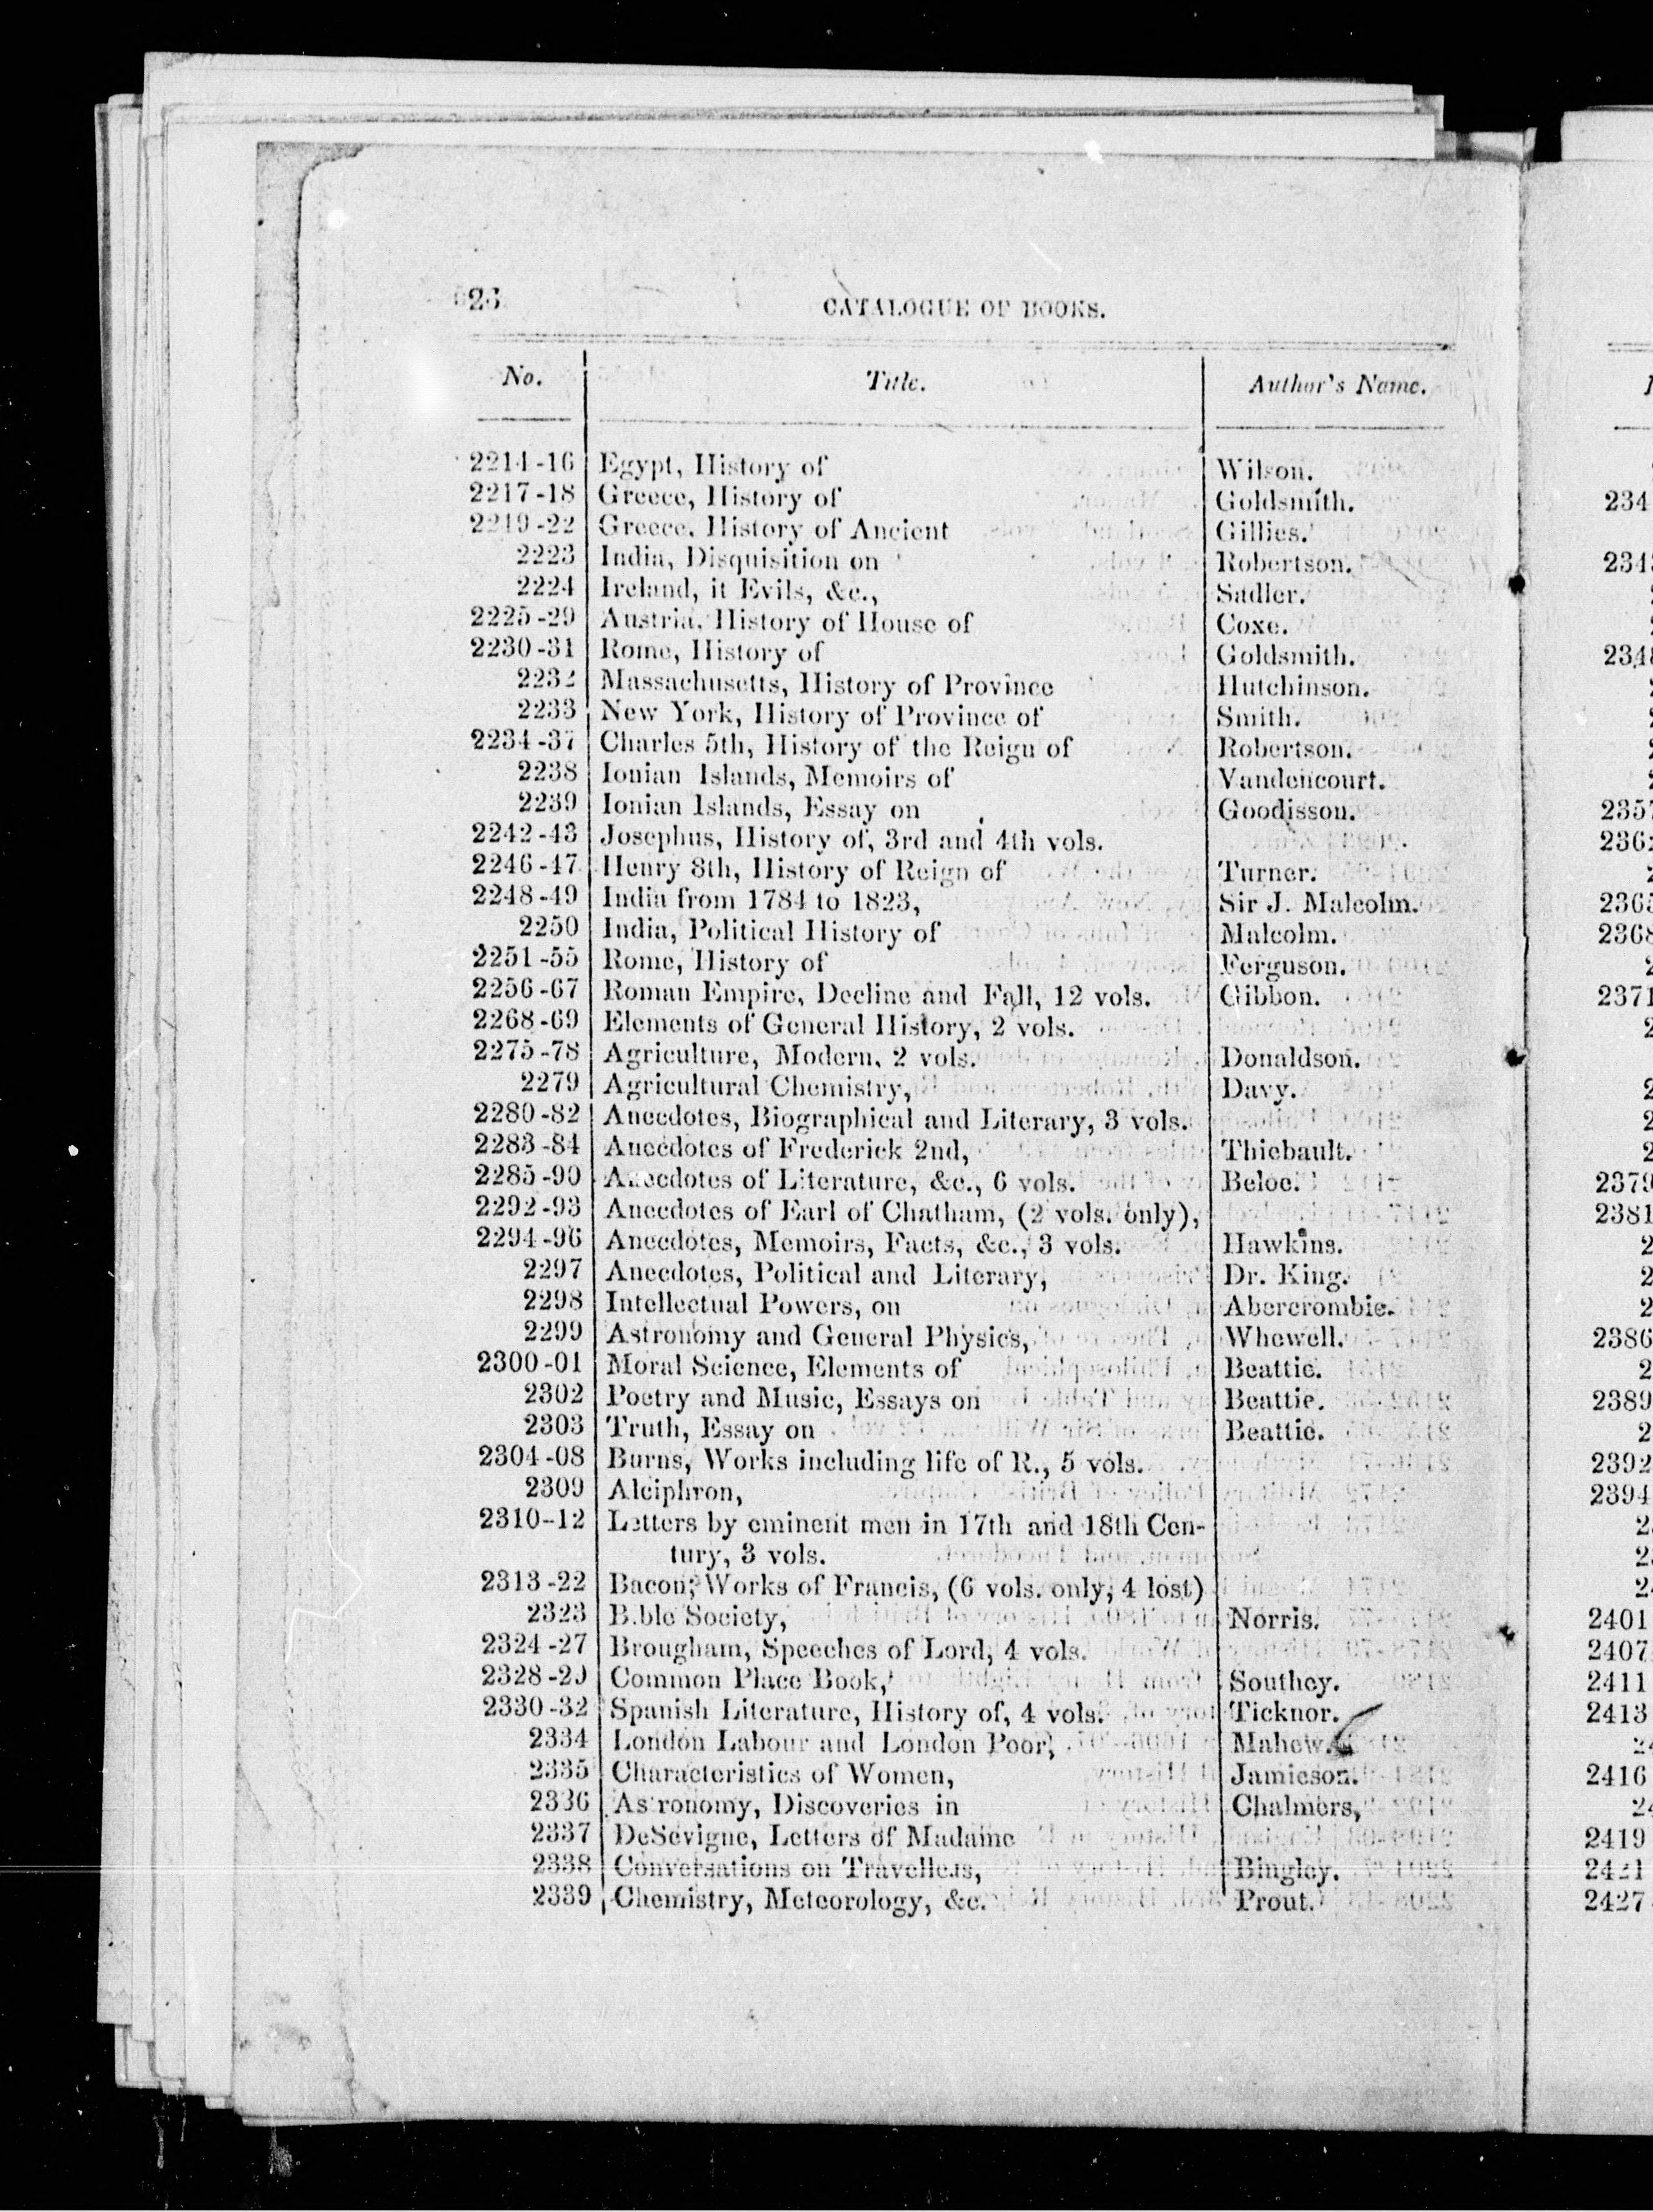 26 CATALOGUE OF BOOKS.
No. Title. Author's Name.
2214-16 Egypt, History of Wilson.
2217-18 Greece, History of Goldsmith.
2219-22 Greece, History of Ancient Gillies.
2223 India, Disquisition on Robertson.
2224 Ireland, it Evils, &c., Sadler.
2225-29 Austria, History of House of Coxe.
2230-31 Rome, History of Goldsmith.
2232 Massachusetts, History of Province Hutchinson.
2233 New York, History of Province of Smith.
2234-37 Charles 5th, History of the Reign of Robertson.
2238 Ionian Islands, Memoirs of Vandencourt.
2239 Ionian Islands, Essay on Goodisson.
2242-43 Josephus, History of, 3rd and 4th vols.
2246-47 Henry 8th, History of Reign of Turner.
2248-49 India from 1784 to 1823, Sir J. Malcolm.
2250 India, Political History of Malcolm.
2251-55 Rome, History of Ferguson.
2256-67 Roman Empire, Decline and Fall, 12 vols. Gibbon.
2268-69 Elements of General History, 2 vols.
2275-78 Agriculture, Modern, 2 vols. Donaldson.
2279 Agricultural Chemistry, Davy.
2280-82 Anecdotes, Biographical and Literary, 3 vols.
2283-84 Anecdotes of Frederick 2nd, Thiebault.
2285-90 Anecdotes of Literature, &c., 6 vols. Beloe.
2292-93 Anecdotes of Earl of Chatham, (2 vols. only),
2294-96 Anecdotes, Memoirs, Facts, &c., 3 vols. Hawkins.
2297 Anecdotes, Political and Literary, Dr. King.
2298 Intellectual Powers, on Abercrombie.
2299 Astronomy and General Physics, Whewell.
2300-01 Moral Science, Elements of Beattie.
2302 Poetry and Music, Essays on Beattie.
2303 Truth, Essay on Beattie.
2304-08 Burns, Works including life of R., 5 vols.
2309 Alciphron,
2310-12 Letters by eminent men in 17th and 18th Cen-
tury, 3 vols.
2313-22 Bacon, Works of Francis, (6 vols. only, 4 lost)
2323 B.ble Society, Norris.
2324-27 Brougham, Speeches of Lord, 4 vols.
2328-29 Common Place Book, Southey.
2330-32 Spanish Literature, History of, 4 vols. Ticknor.
2334 London Labour and London Poor, Mahew.
2335 Characteristics of Women, Jamieson.
2336 Astronomy, Discoveries in Chalmers,
2337 DeSevigne, Letters of Madame
2338 Conversations on Travellers, Bingley.
2339 Chemistry, Meteorology, &c. Prout.